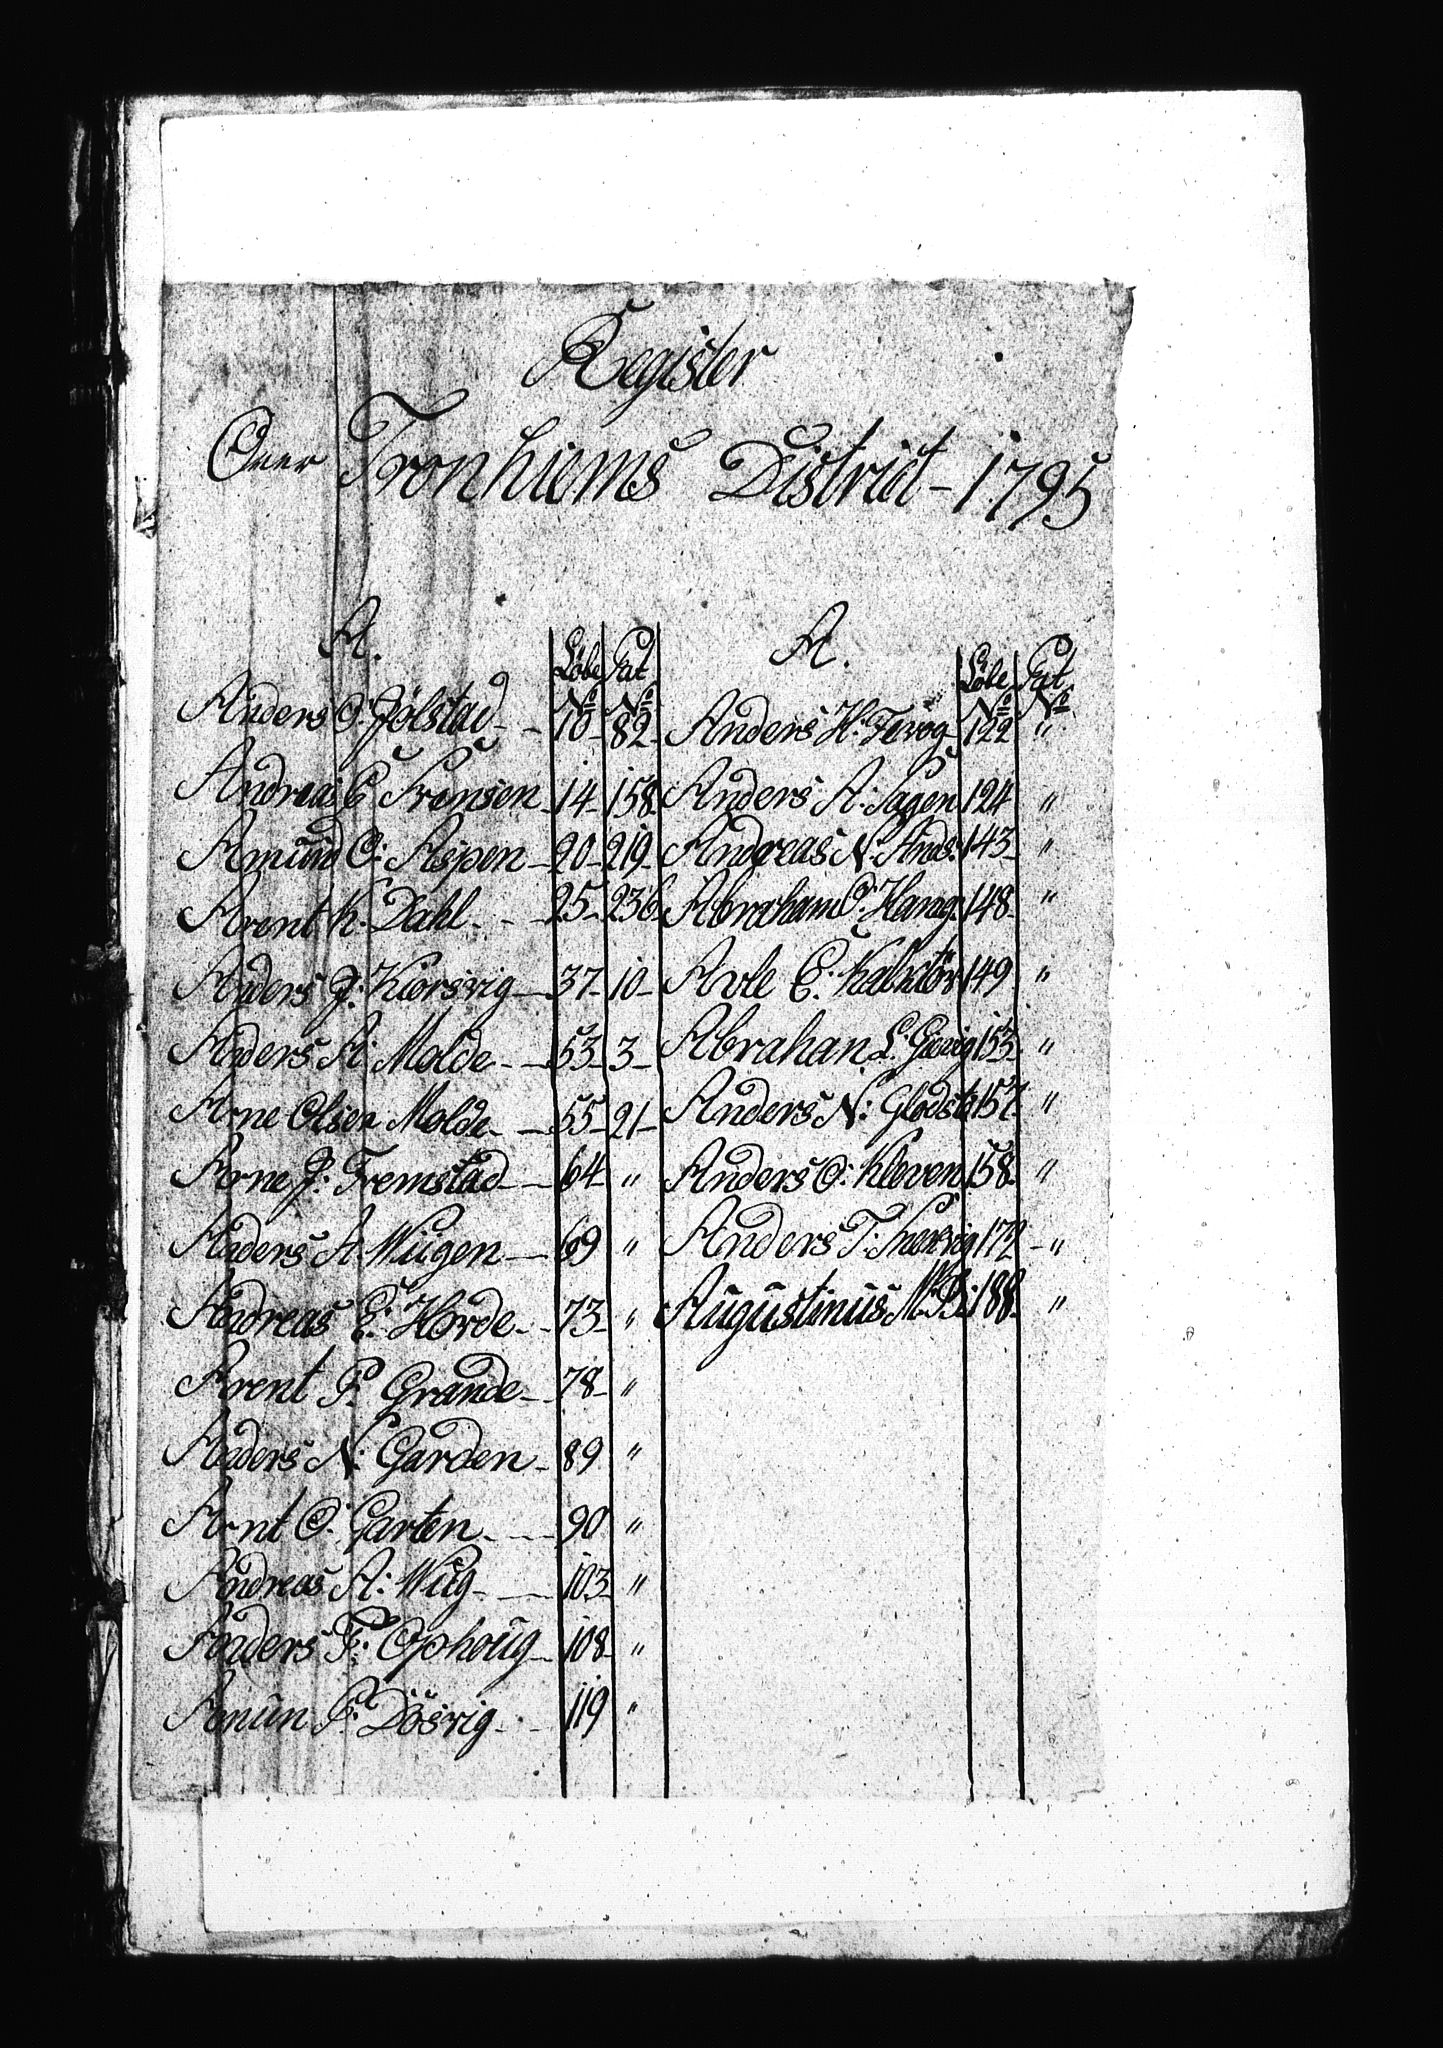 Register
Over Tronhiems District - 1795
A.
Löbe No
Pat No
Anders O: Jölstad - - 10 - 82 -
Andreas C Fransen - 14 - 158
Amund O: Aspen - 20 - 219 -
Arent K. Dahl - - - 25 - 236
Anders J: Kiörsvig - 37 - 10 -
Anders A: Molde - - 53 - 3 -
Arne Olsen Molde - - 55 - 21 -
Arne J: Fremstad - - 64 - "
Anders A. Wiigen - 69 "
Andreas E: Horde - - 73 - "
Arent P. Grande - - 78 - "
Anders N: Garden - 89 "
Arnt O. Garten - - - 90 "
Andreas A: Wiig - - - 103 - "
Anders F: Ophoug - 108 - "
Amün P: Dösvig - - 119 "
A.
Löbe No
Pat No
Anders H: Tevog - 122 "
Anders A: Sagen 124 "
Andreas N: Ands: 143 - "
Abraham O: Harag: 148 - "
Avle E: Kalktör 149 "
Abrahan L: Gievig 153 - "
Anders N: Glodst: 157 "
Anders O: Kleven 158 - "
Anders T: Snekvig 172 - "
Augustinus M: B: 188 - "